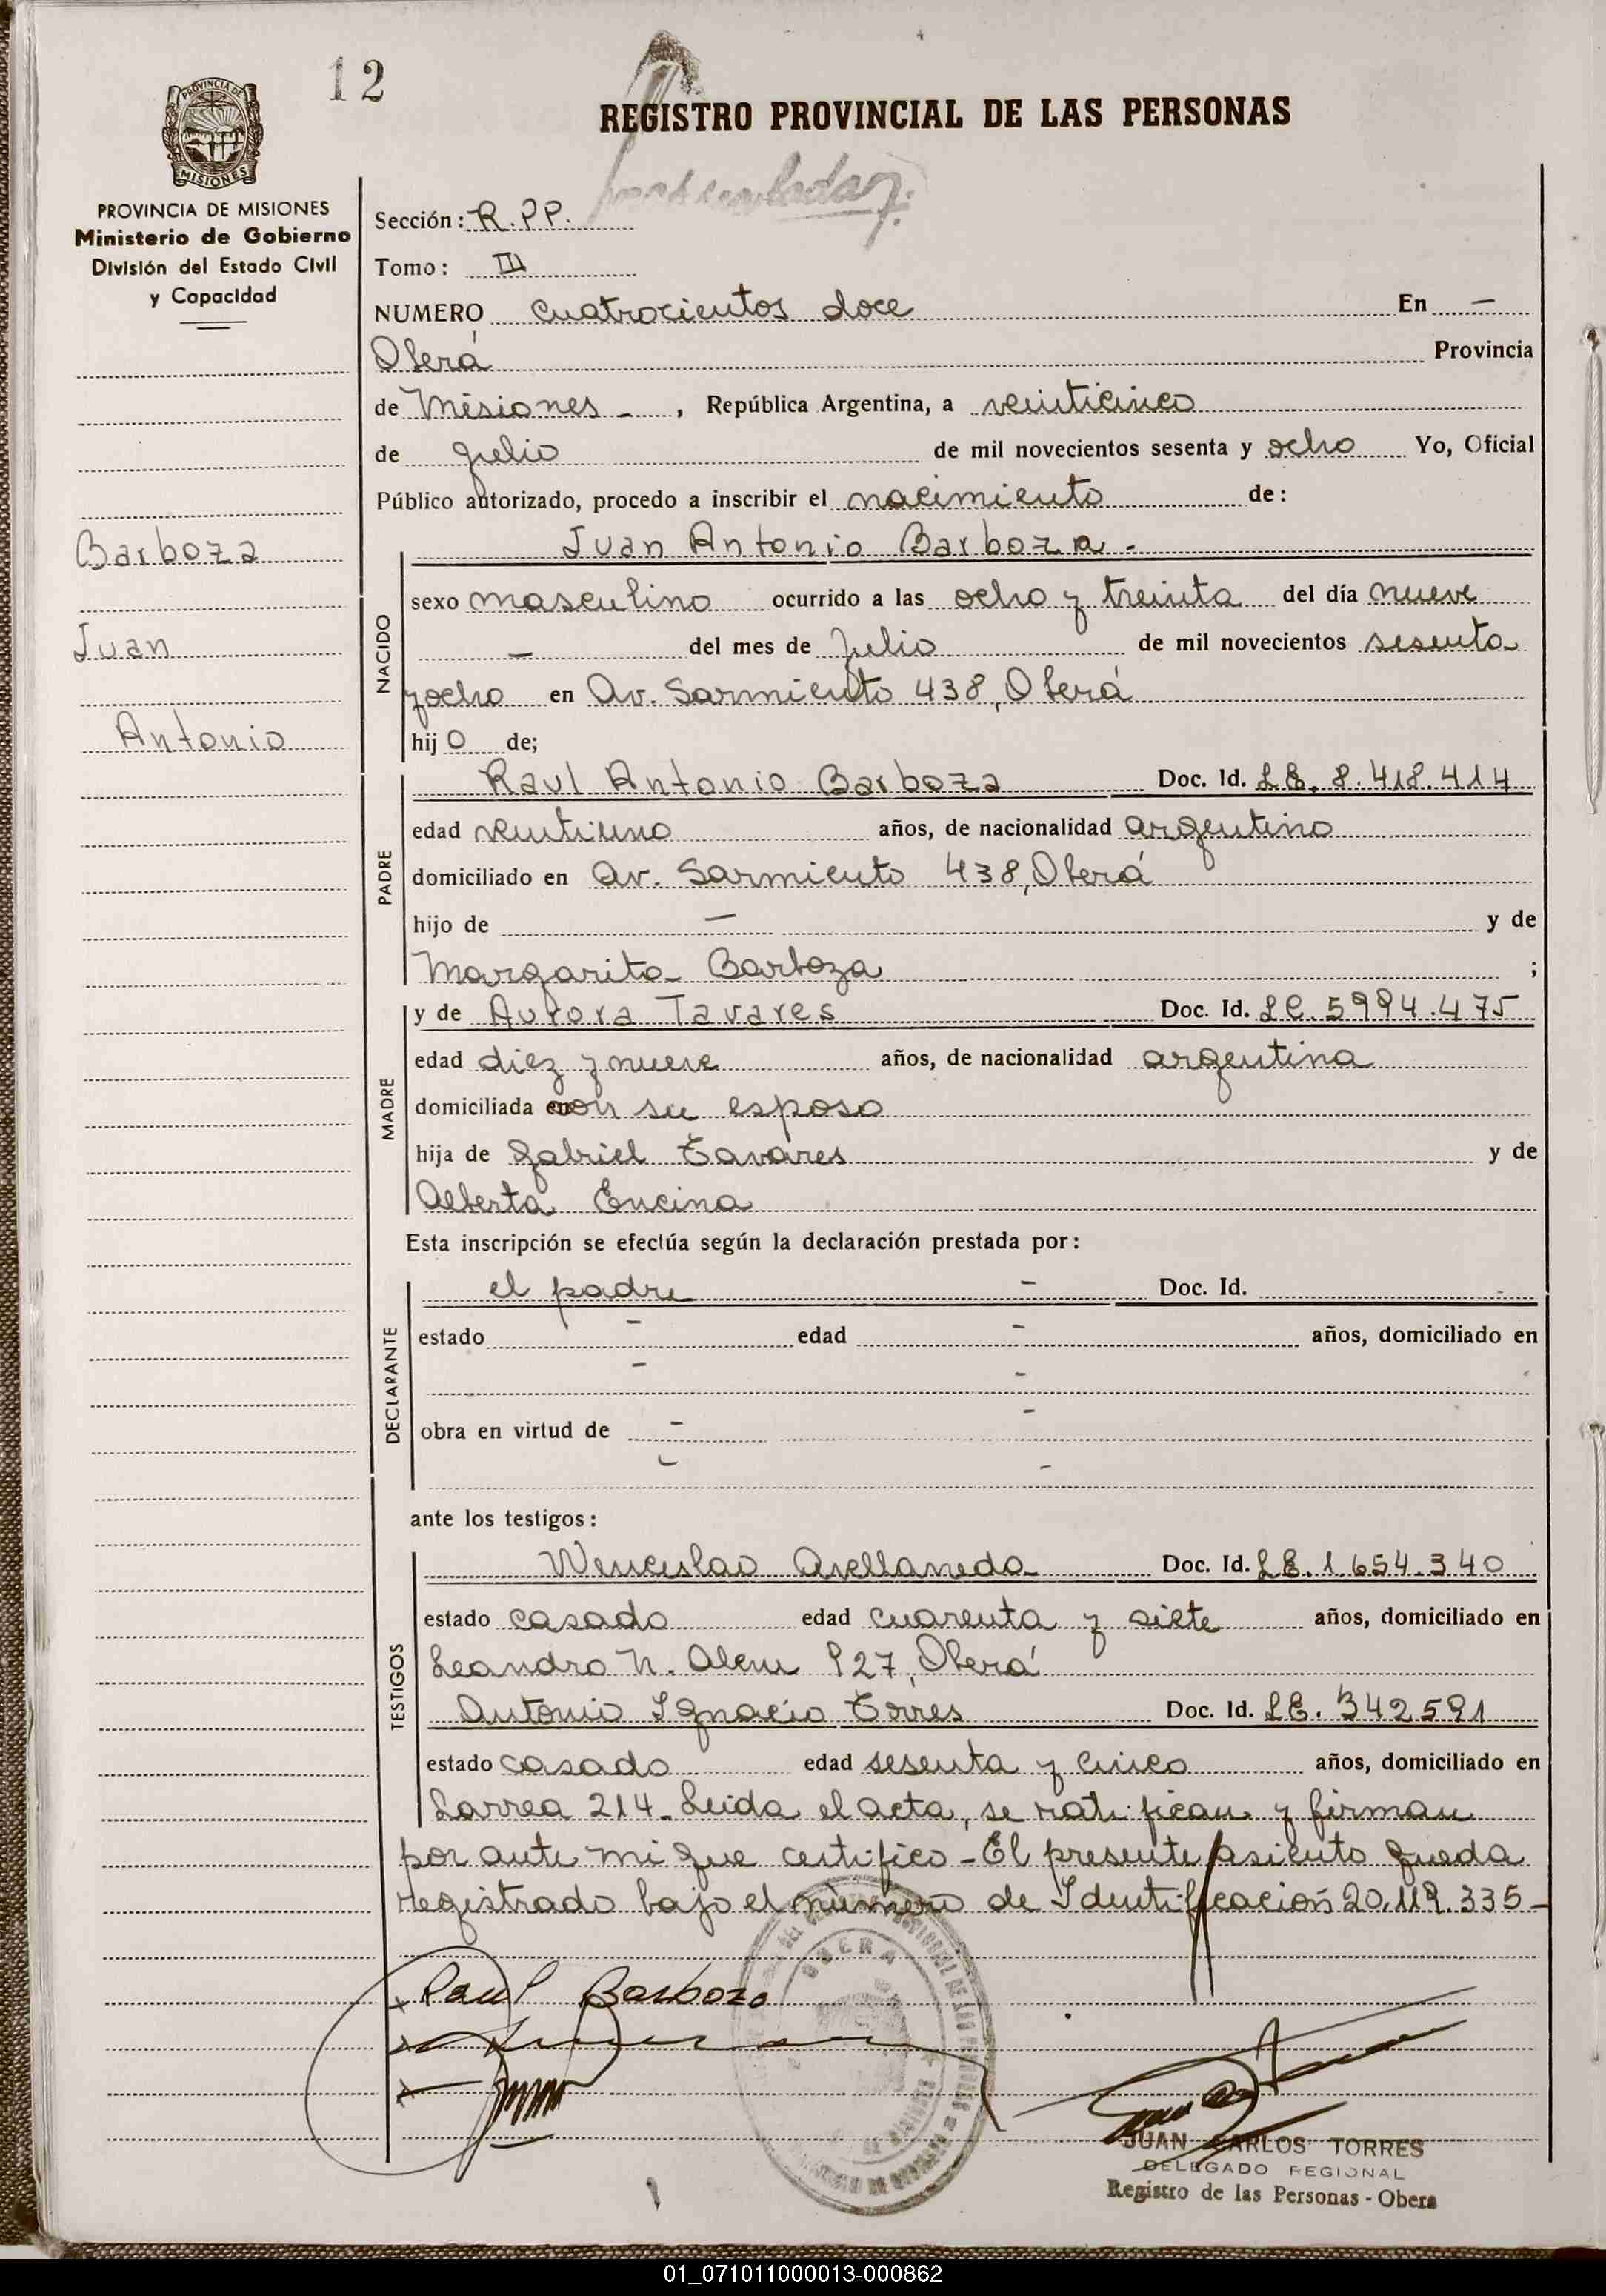 12
REGISTRO PROVINCIAL DE LAS PERSONAS
PROVINCIA DE MISIONES
Ministerio de Gobierno
División del Estado Civil
y Capacidad
Sección: R.PP.
Tomo: III
NUMERO cuatrocientos doce En —
Oberá Provincia
de Misiones - , República Argentina, a veinticinco
de julio de mil novecientos sesenta y ocho Yo, Oficial
Público autorizado, procedo a inscribir el nacimiento de:
Barboza
Juan
Antonio
NACIDO
Juan Antonio Barboza -
sexo masculino ocurrido a las ocho y treinta del día nueve
— del mes de julio de mil novecientos sesenta
y ocho en Av. Sarmiento 438, Oberá
hijo de;
PADRE
Raul Antonio Barboza Doc. Id. LE. 8.418.414
edad veintiuno años, de nacionalidad argentino
domiciliado en Av. Sarmiento 438, Oberá
hijo de — y de
Margarita Barboza ;
MADRE
y de Aurora Tavares Doc. Id. LC. 5994.475
edad diez y nueve años, de nacionalidad argentina
domiciliada con su esposo
hija de Gabriel Tavares y de
Alberta Encina
Esta inscripción se efectúa según la declaración prestada por:
DECLARANTE
el padre - Doc. Id. -
estado - edad - años, domiciliado en
- -
obra en virtud de - -
- -
ante los testigos:
TESTIGOS
Wenceslao Avellaneda Doc. Id. LE. 1.654.340
estado casado edad cuarenta y siete años, domiciliado en
Leandro N. Alem 927, Oberá
Antonio Ignacio Torres Doc. Id. LE. 342591
estado casado edad sesenta y cinco años, domiciliado en
Larrea 214 - Leida el acta, se ratifican y firman
por ante mi que certifico - El presente asiento queda
registrado bajo el número de Identificación 20.119.335 -
OBERA
Raul Barboza
JUAN CARLOS TORRES
DELEGADO REGIONAL
Registro de las Personas - Obera
01_071011000013-000862